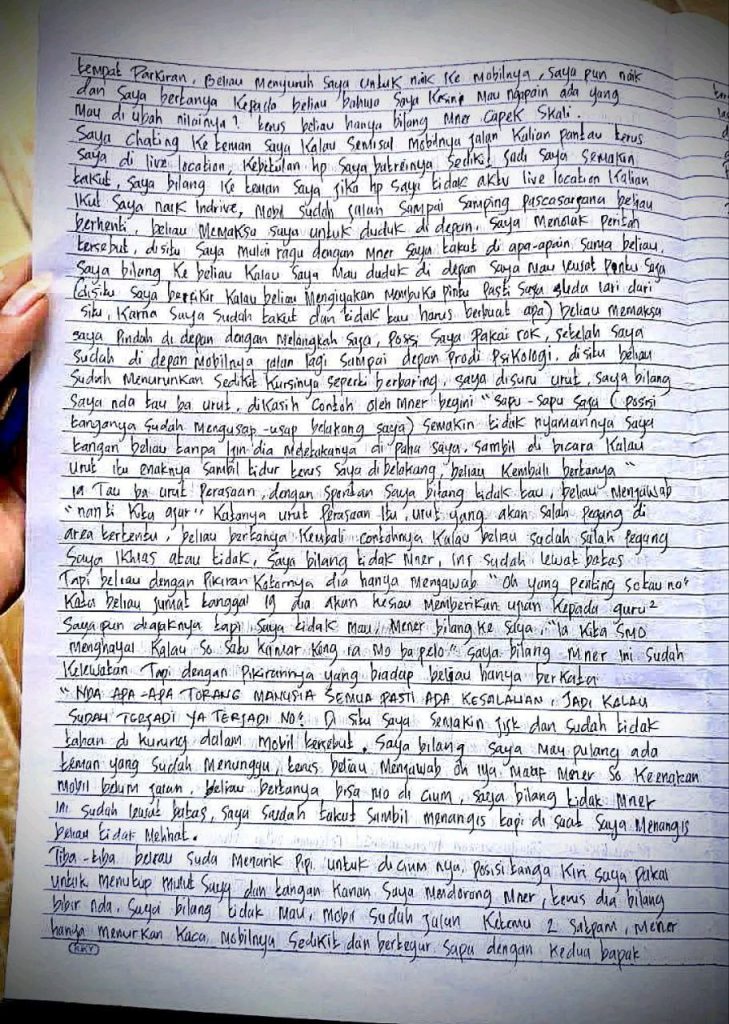 tempat Parkiran, Beliau Menyuruh Saya untuk naik Ke mobilnya, saya pun naik
dan Saya bertanya Kepada beliau bahwa Saya Kesini Mau ngapain ada yang
Mau di ubah nilainya? terus beliau hanya bilang Mner Capek Skali.
Saya Chating Ke teman saya Kalau Semisal Mobilnya jalan Kalian Pantau terus
Saya di live location, Kebetulan hp Saya batreinya Sedikit Jadi Saya Semakin
takut, Saya bilang Ke teman Saya jika hp Saya tidak aktif live location Kalian
Ikut Saya naik Indrive, Mobil Sudah jalan Sampai Samping Pascasarjana beliau
berhenti, beliau Memaksa saya untuk duduk di depan, Saya Menolak
tersebut, disitu Saya Mulai ragu dengan Mner Saya takut di apa-apain Sama beliau,
Saya bilang Ke beliau Kalau Saya Mau duduk di depan Saya Mau lewat Pintu Saja
(disitu Saya berfikir Kalau beliau Mengiyakan Membuka pintu Pasti Saya suda lari dari
situ, Karna Saya Sudah takut dan tidak tau harus berbuat apa) beliau memaksa
saya Pindah di depan dengan Melangkah Saja, Posisi Saya Pakai rok, Setelah Saya
Sudah di depan Mobilnya jalan lagi Sampai depan Prodi Psikologi, disitu beliau
Sudah Menurunkan Sedikit Kursinya seperti berbaring, saya disuru urut, Saya bilang
Saya nda tau ba urut, dikasih Contoh oleh Mner begini "Sapu-Sapu Saja (Posisi
tanganya Sudah Mengusap-usap belakang saya) Semakin tidak nyamannya Saya
tangan beliau tanpa Izin dia Meletakanya di Paha saya, Sambil di bicara Kalau
Urut itu enaknya Sambil tidur terus Saya dibelakang, beliau Kembali bertanya "
ia Tau ba urut Perasaan, dengan Spontan Saya bilang tidak tau, beliau Menjawab
"nanti Kita ajar" Katanya urut Perasaan itu, urut yang akan Salah Pegang di
area tertentu, beliau bertanya Kembali Contohnya Kalau beliau Sudah Salah Pegang
Saya Ikhlas atau tidak, Saya bilang tidak Mner, ini sudah lewat batas
Tapi beliau dengan Pikiran Kotornya dia hanya Menjawab "Oh yang Penting so tau no"
Kata beliau jumat tanggal 19 dia akan Kesiau Memberikan ujian Kepada guru²
Saya pun diajaknya tapi Saya tidak Mau, Mener bilang Ke Saya, "Ia Kita So
menghayal Kalau So Satu Kamar Kong ia Mo ba pelo" Saya bilang Mner Ini Sudah
Kelewatan Tapi dengan Pikirannya yang biadap beliau hanya berkata
"NDA APA-APA TORANG MANUSIA SEMUA PASTI ADA KESALAHAN, JADI KALAU
SUDAH TERJADI YA TERJADI NO" Di Situ Saya Semakin dan Sudah tidak
tahan di Kurung dalam Mobil tersebut. Saya bilang Saya Mau Pulang ada
teman yang Sudah Menunggu, terus beliau Menjawab oh iya Maaf Mener So Keenakan
Mobil belum jalan, beliau bertanya bisa mo di Cium, Saya bilang tidak Mner
ini Sudah lewat batas, Saya Sudah takut Sambil menangis tapi di Saat Saya Menangis
beliau tidak Melihat.
Tiba-tiba beliau Suda Menarik Pipi untuk diciumnya, Posisi tanga Kiri Saya Pakai
untuk Menutup Mulut Saya dan tangan Kanan Saya Mendorong Mner, terus dia bilang
bibir nda, Saya bilang tidak Mau, Mobil Sudah jalan Ketemu 2 Satpam, Mener
hanya menurkan Kaca Mobilnya Sedikit dan bertegur Sapa dengan Kedua bapak
KKY